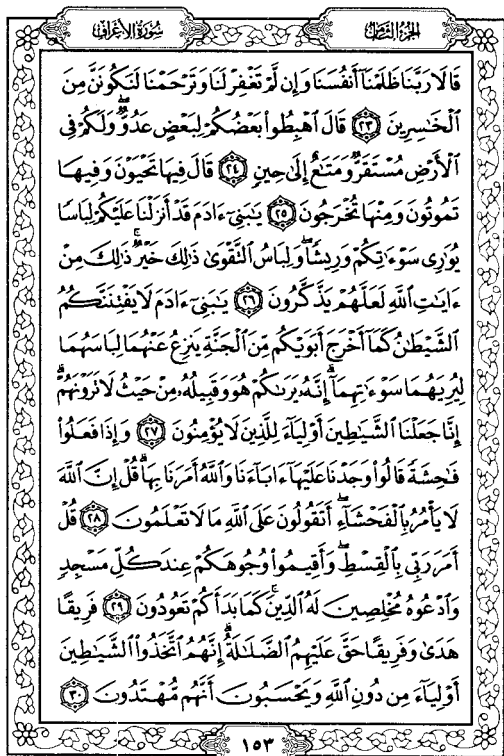 الجزء الثامن
سورة الأعراف
قَالَا رَبَّنَا ظَلَمْنَا أَنفُسَنَا وَإِن لَّمْ تَغْفِرْ لَنَا وَتَرْحَمْنَا لَنَكُونَنَّ مِنَ
ٱلْخَٰسِرِينَ ٢٣ قَالَ ٱهْبِطُوا۟ بَعْضُكُمْ لِبَعْضٍ عَدُوٌّ ۖ وَلَكُمْ فِى
ٱلْأَرْضِ مُسْتَقَرٌّ وَمَتَٰعٌ إِلَىٰ حِينٍ ٢٤ قَالَ فِيهَا تَحْيَوْنَ وَفِيهَا
تَمُوتُونَ وَمِنْهَا تُخْرَجُونَ ٢٥ يَٰبَنِىٓ ءَادَمَ قَدْ أَنزَلْنَا عَلَيْكُمْ لِبَاسًا
يُوَٰرِى سَوْءَٰتِكُمْ وَرِيشًا ۖ وَلِبَاسُ ٱلتَّقْوَىٰ ذَٰلِكَ خَيْرٌ ۚ ذَٰلِكَ مِنْ
ءَايَٰتِ ٱللَّهِ لَعَلَّهُمْ يَذَّكَّرُونَ ٢٦ يَٰبَنِىٓ ءَادَمَ لَا يَفْتِنَنَّكُمُ
ٱلشَّيْطَٰنُ كَمَآ أَخْرَجَ أَبَوَيْكُم مِّنَ ٱلْجَنَّةِ يَنزِعُ عَنْهُمَا لِبَاسَهُمَا
لِيُرِيَهُمَا سَوْءَٰتِهِمَآ ۗ إِنَّهُۥ يَرَىٰكُمْ هُوَ وَقَبِيلُهُۥ مِنْ حَيْثُ لَا تَرَوْنَهُمْ ۗ
إِنَّا جَعَلْنَا ٱلشَّيَٰطِينَ أَوْلِيَآءَ لِلَّذِينَ لَا يُؤْمِنُونَ ٢٧ وَإِذَا فَعَلُوا۟
فَٰحِشَةً قَالُوا۟ وَجَدْنَا عَلَيْهَآ ءَابَآءَنَا وَٱللَّهُ أَمَرَنَا بِهَا ۗ قُلْ إِنَّ ٱللَّهَ
لَا يَأْمُرُ بِٱلْفَحْشَآءِ ۖ أَتَقُولُونَ عَلَى ٱللَّهِ مَا لَا تَعْلَمُونَ ٢٨ قُلْ
أَمَرَ رَبِّى بِٱلْقِسْطِ ۖ وَأَقِيمُوا۟ وُجُوهَكُمْ عِندَ كُلِّ مَسْجِدٍ
وَٱدْعُوهُ مُخْلِصِينَ لَهُ ٱلدِّينَ ۚ كَمَا بَدَأَكُمْ تَعُودُونَ ٢٩ فَرِيقًا
هَدَىٰ وَفَرِيقًا حَقَّ عَلَيْهِمُ ٱلضَّلَٰلَةُ ۗ إِنَّهُمُ ٱتَّخَذُوا۟ ٱلشَّيَٰطِينَ
أَوْلِيَآءَ مِن دُونِ ٱللَّهِ وَيَحْسَبُونَ أَنَّهُم مُّهْتَدُونَ ٣٠
١٥٣